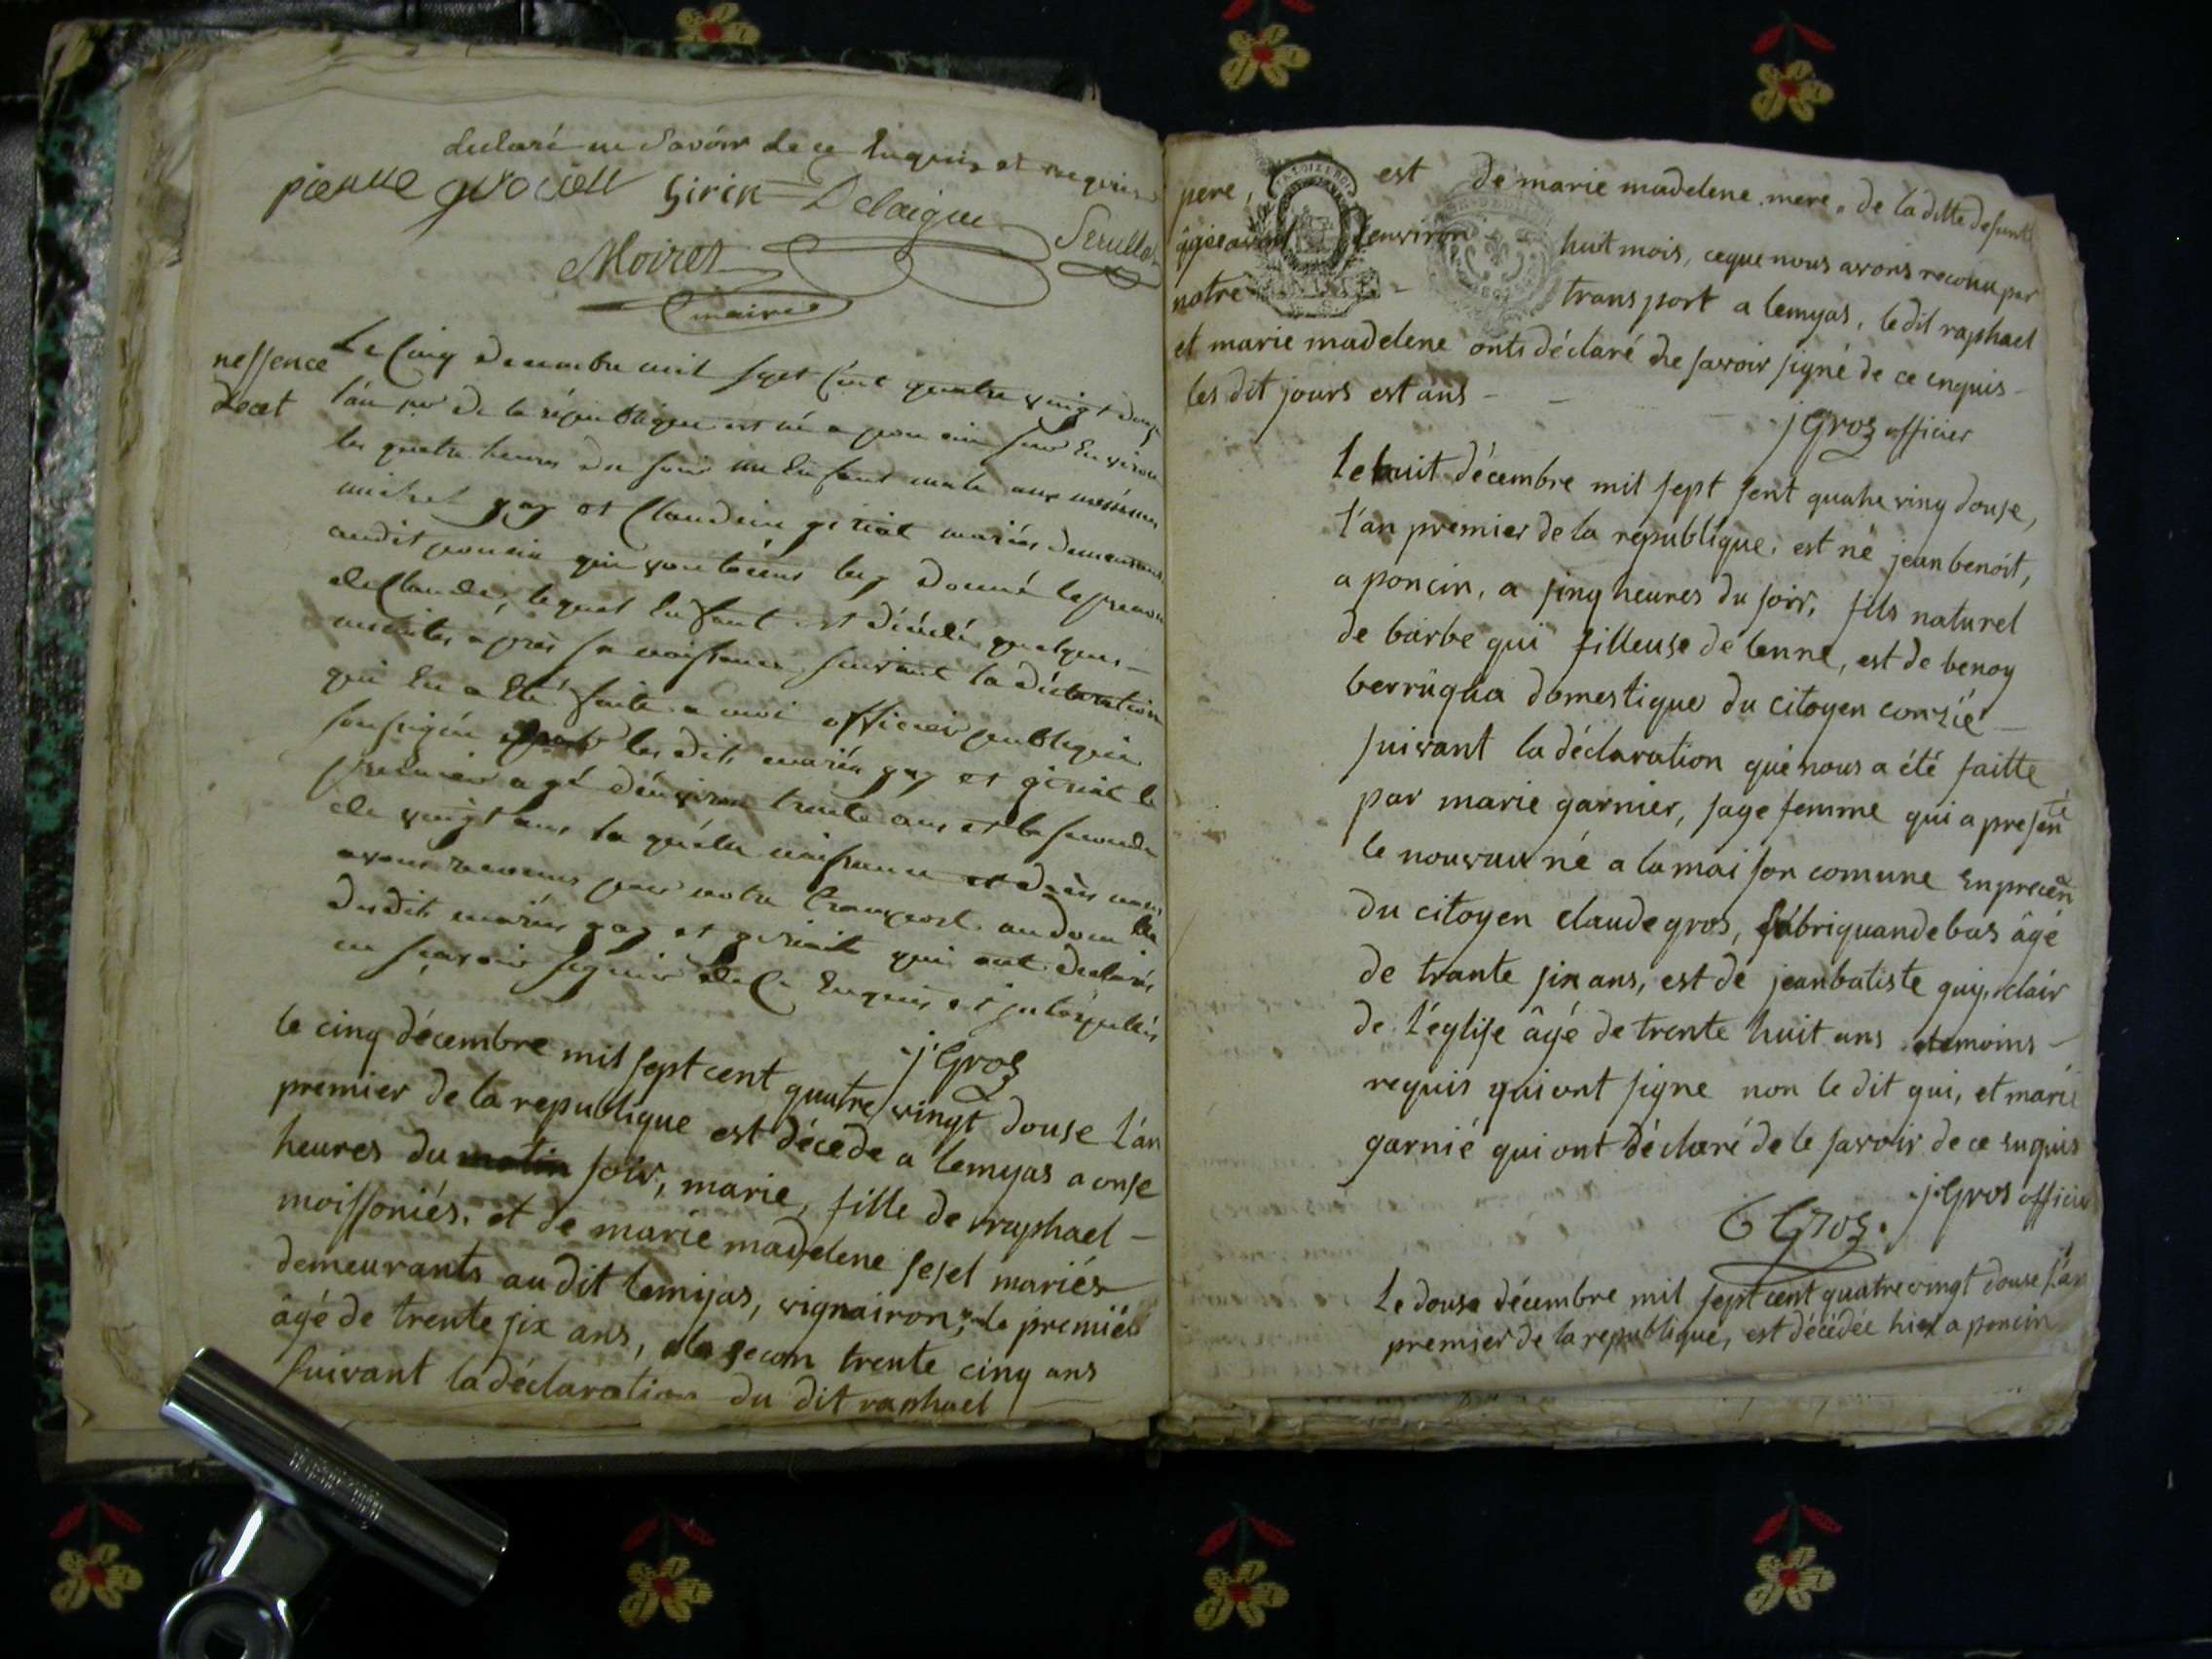 declaré ne savoir de ce Enquis et requis
pierre girin Delaigue
Moiret
maire
nessence
decet
Le Cinq decembre mil sept Cent quatre vingt douze
l'an per de la république est né a poncin sur Environ
les quatre heures du soir un Enfant male aux mesmes
michel gay et Claudine mariés demeurans
audit poncin qui luy donné le prenom
de Claude, lequel Enfant est décédé quelques
minutes après sa naissance suivant la déclaration
qui En a Eté faite a moi officier publique
soussigné les dits mariés gay et le
premier agé d'environ trente ans et la seconde
de vingt ans la quelle naissance et décès nous
avons reconnus par notre transport au domicile
desdits mariés gay et qui ont déclarés
ne sçavoir signer de Ce Enquis et interpellés
j Gros
le cinq décembre mil sept cent quatre vingt douse l'an
premier de la republique est décede a lemyas a onse
heures du matin soir, marie, fille de rraphael
moissoniés, et de marie madelene sesel mariés
demeurants au dit lemyas, vignairon, le premiér
âgé de trente six ans, la secon trente cinq ans
suivant la déclaration du dit raphael
pere, est de marie madelene mere, de la ditte defunte
âgée denviron huit mois, ce que nous avons reconu par
notre transport a lemyas, le dit raphael
et marie madelene onts déclaré ne savoir signé de ce enquis
les dit jours est ans
j Gros officier
le huit décembre mil sept sent quatre ving douse,
l'an premier de la république, est né jean benoit,
a poncin, a sinq heures du soir, fils naturel
de barbe qui filleuse de lenne, est de benoy
berruqua domestique du citoyen corsié
suivant la déclaration que nous a été faitte
par marie garnier, sage femme qui a presenté
le nouvau né a la maison comune en precen
du citoyen claude gros, fabriquan de bas âgé
de trante six ans, est de jean batiste guy, clair
de l'église âgé de trente huit ans temoins
requis qui ont signe non le dit qui, et marie
garnié qui ont déclaré de le savoir de ce enquis
j. Gros officier
C Gros.
Le douse décembre mil sept cent quatre vingt douse l'an
premier de la republique, est décédée hier a poncin